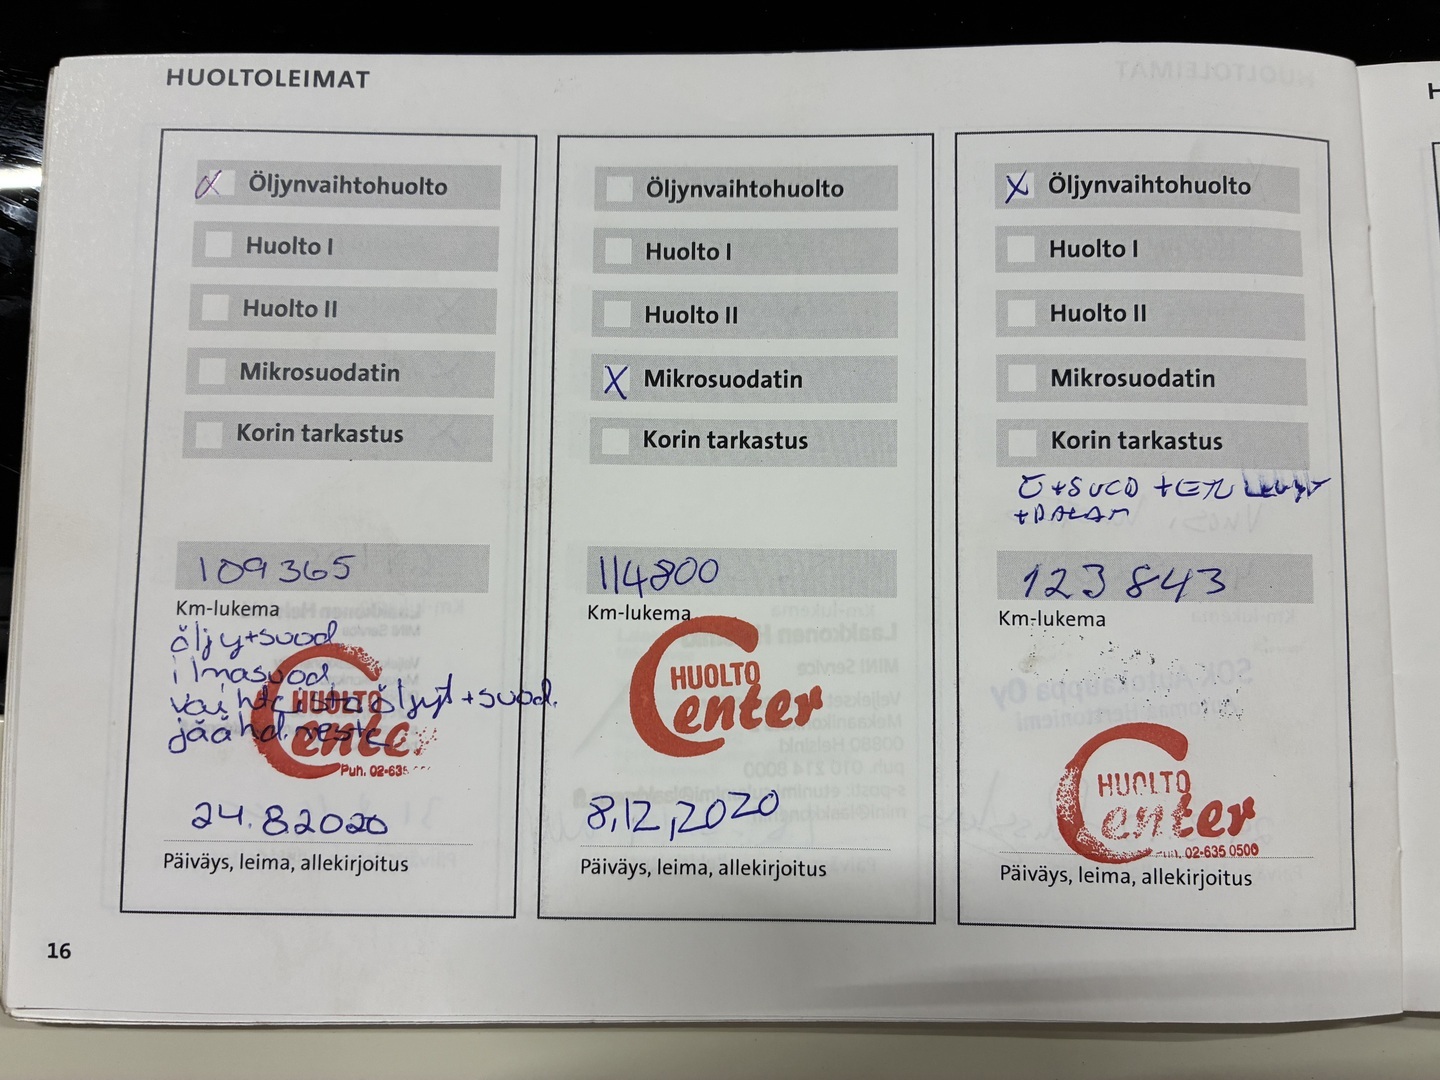 HUOLTOLEIMAT
Öljynvaihtohuolto
Huolto I
Huolto II
Mikrosuodatin
Korin tarkastus
109365
Km-lukema
öljy+suod
ilmasuod
öljyt+suod.
HUOLTO
Center
Puh. 02-635
24.8.2020
Päiväys, leima, allekirjoitus
Öljynvaihtohuolto
Huolto I
Huolto II
X Mikrosuodatin
Korin tarkastus
114800
Km-lukema
HUOLTO
Center
8,12,2020
Päiväys, leima, allekirjoitus
X Öljynvaihtohuolto
Huolto I
Huolto II
Mikrosuodatin
Korin tarkastus
Ö+SUOD
123 843
Km-lukema
HUOLTO
Center
Puh. 02-635 0500
Päiväys, leima, allekirjoitus
16